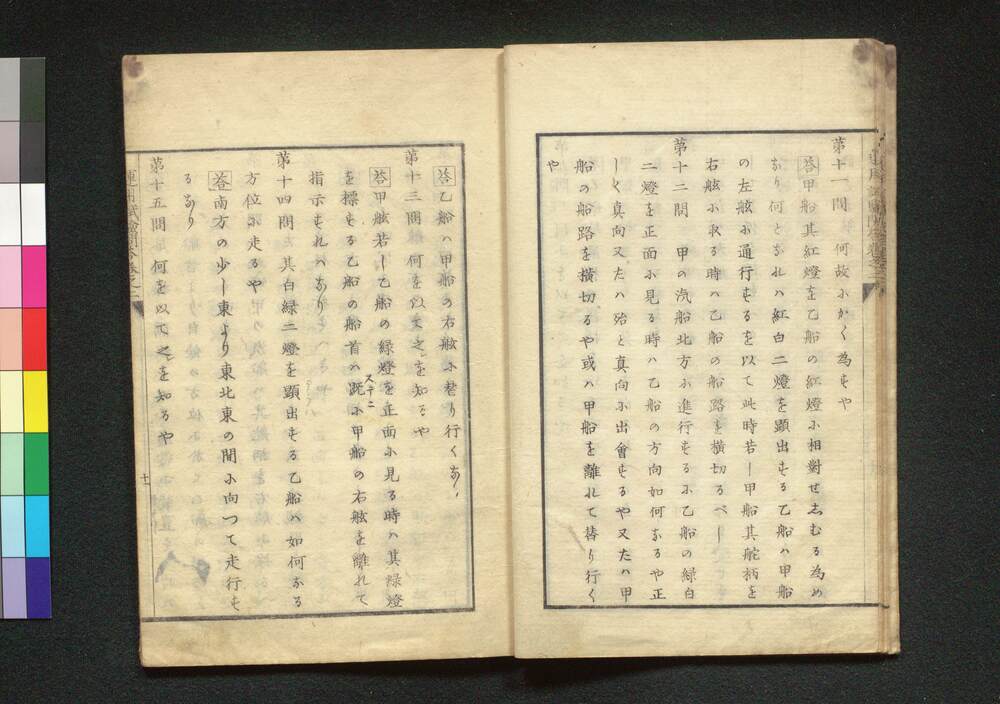 第十一問 何故にかく為すや
答 甲船其紅燈を乙船の紅燈に相對せしむる為め
なり何となれハ紅白二燈を顕出する乙船ハ甲船
の左舷に通行するを以て此時若し甲船其舵柄を
右舷に取る時ハ乙船の船路を横切るべし
第十二問 甲の汽船北方に進行するに乙船の緑白
二燈を正面に見る時ハ乙船の方向如何なるや正
しく真向又たハ殆と真向に出會するや又たハ甲
船の船路を横切るや或ハ甲船を離れて替り行く
や
答 乙船ハ甲船の右舷に替り行くなり
第十三問 何を以て之を知るや
答 甲舷若し乙船の緑燈を正面に見る時ハ其緑燈
を標する乙船の船首ハ既に甲船の右舷を離れて
スデニ
指示すれハなり
第十四問 其白緑二燈を顕出する乙船ハ如何なる
方位に走るや
答 南方の少し東より東北東の間に向つて走行す
るなり
第十五問 何を以て之を知るや
十一